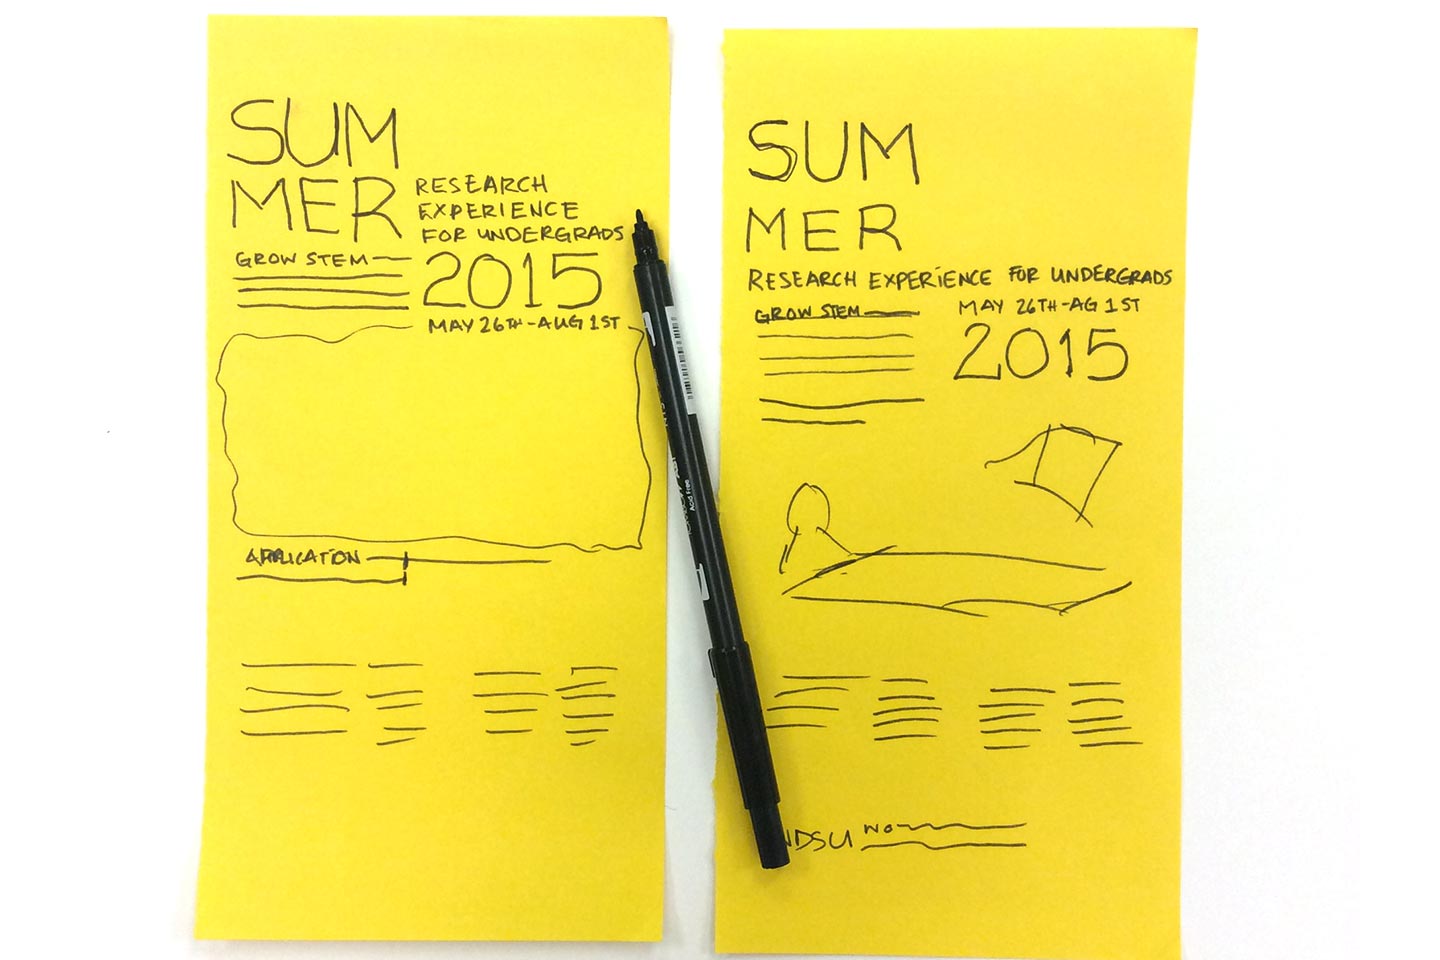 SUM
MER
RESEARCH
EXPERIENCE
FOR UNDERGRADS
GROW STEM
2015
MAY 26TH-AUG 1ST
APPLICATION
SUM
MER
RESEARCH EXPERIENCE FOR UNDERGRADS
GROW STEM
MAY 26TH-AG 1ST
2015
NDSU
Acid Free